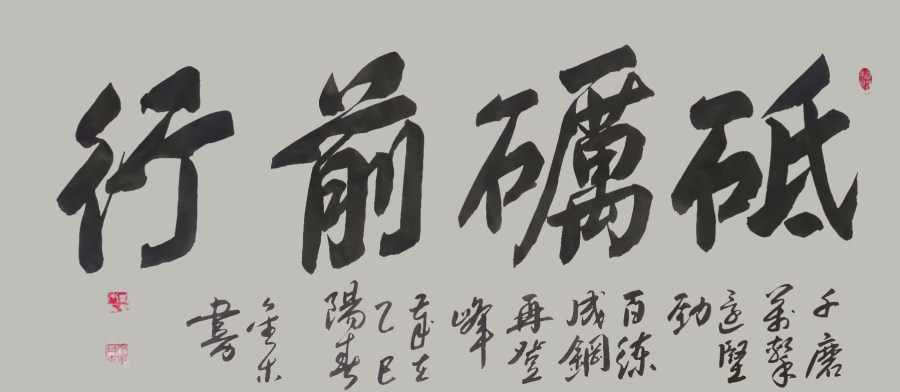 砥礪前行
千磨
萬擊
還堅
勁
百練
成鋼
再登
峰
歲在
乙巳
陽春
金
書